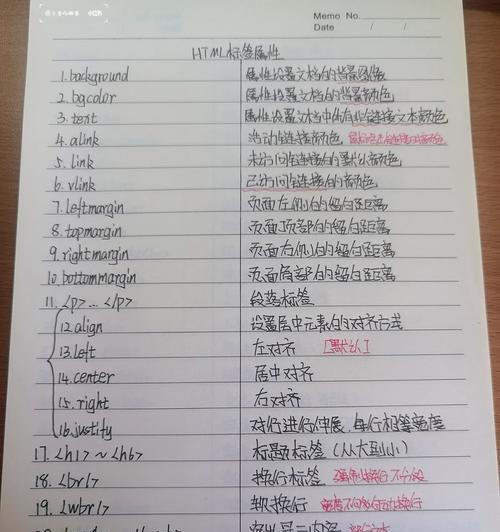 Memo No.
Date / /
HTML标签属性
1.background 属性设置文档的背景图像
2.bgcolor 属性设置文档的背景颜色
3.text 属性设置文档中的有非链接文本颜色
4.alink 活动链接颜色
5.link 未访问链接的默认颜色
6.vlink 已访问链接的颜色
7.leftmargin 页面左侧的留白距离
8.topmargin 页面顶部的留白距离
9.rightmargin 页面右侧的留白距离
10.bottommargin 页面底部的留白距离
11.<p>...</p> 段落标签
12.align 设置层中元素的对齐方式
13.left 左对齐 [默认]
14.center 居中对齐
15.right 右对齐
16.justify 对行进行伸展,每行相等宽度
17.<h1>~<h6> 标题标签(从大到小)
18.<br/> 换行标签 强制换行不分段
19.<wbr/> 软换行